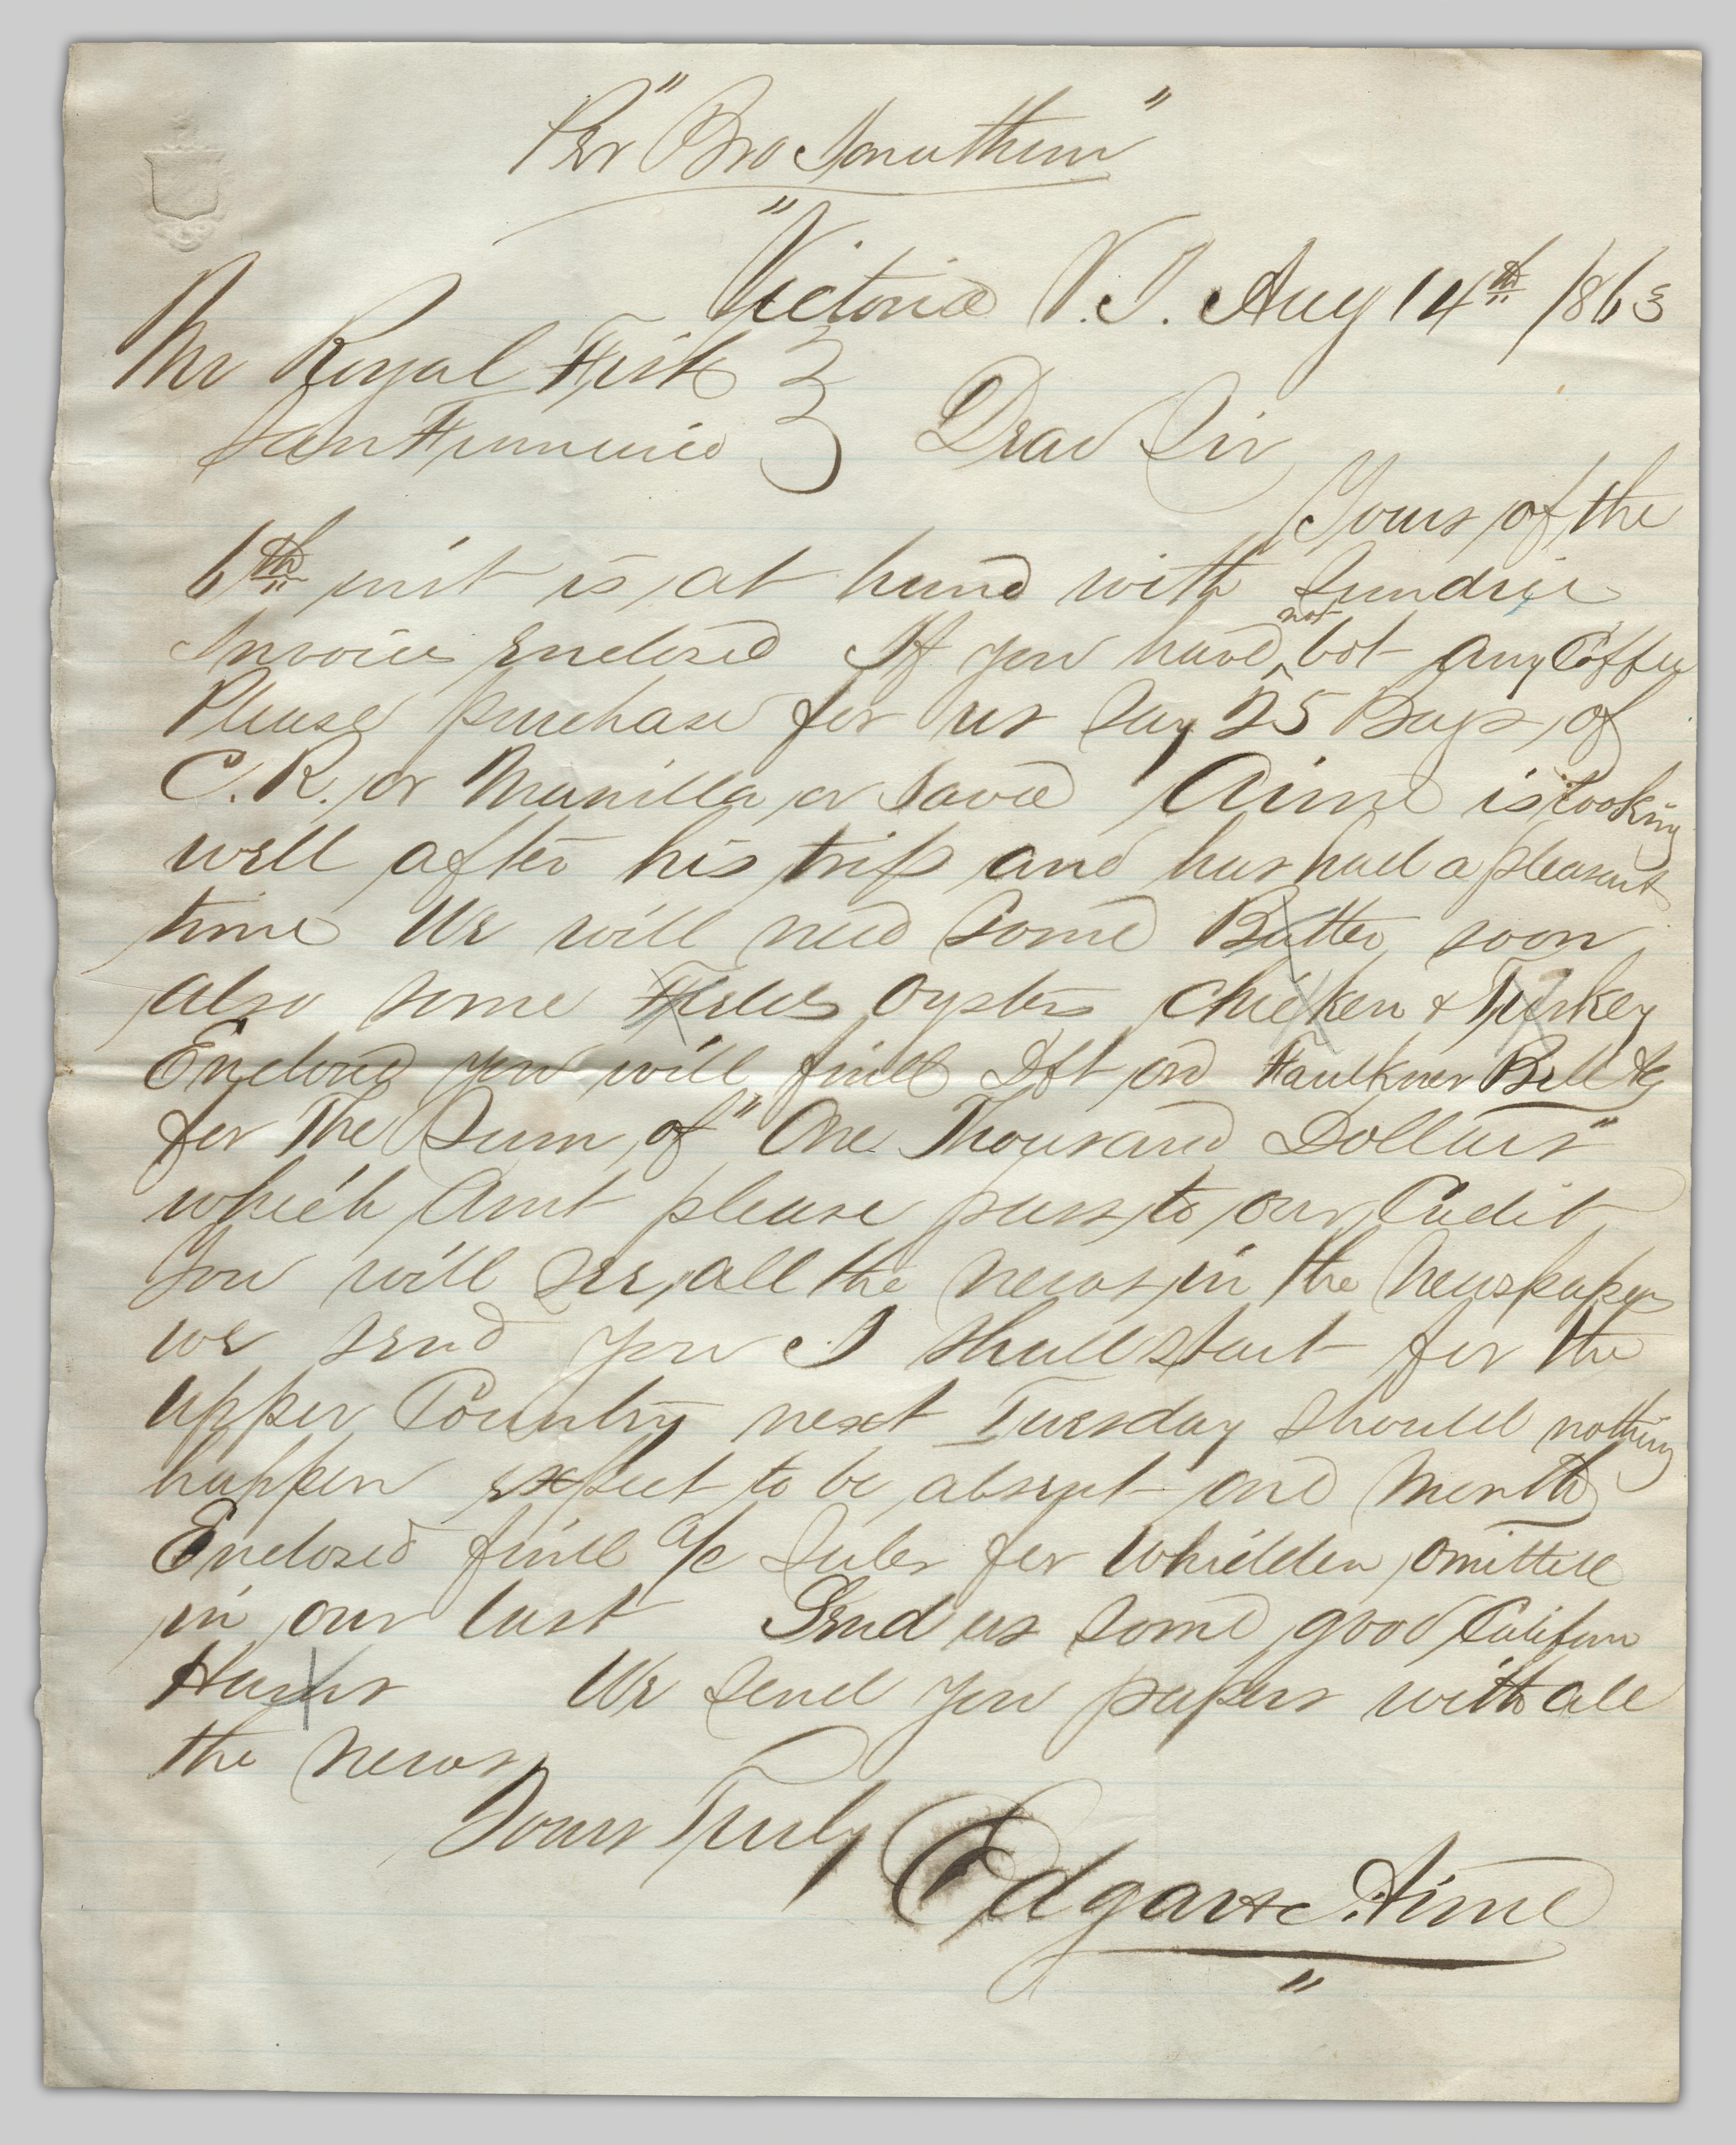 Per "Bro Jonathan"
Victoria V.I. Aug 14th 1863
Mr Royal Fisk
San Francisco } Dear Sir
Yours of the
6th inst is at hand with Sundrie
Invoices Enclosed If you have not bot any Coffee
Please purchase for us say 25 Bags of
C.R. or Manilla or Java Aime is looking
well after his trip and has had a pleasant
time We will need some Butter soon
also some Oysters Chicken & Turkey
Enclosed you will find Dft on Faulkner Bell & Co
for The Sum of "One Thousand Dollars"
which Amt please pass to our Credit
You will see all the news in the Newspapers
we send you I shall start for the
upper Country next Tuesday should nothing
happen expect to be absent one month
Enclosed find a/c Sales for Whidden omitted
in our last Send us some good Californ
Hams We send you papers with all
the news
Yours Truly
Edgar & Aime